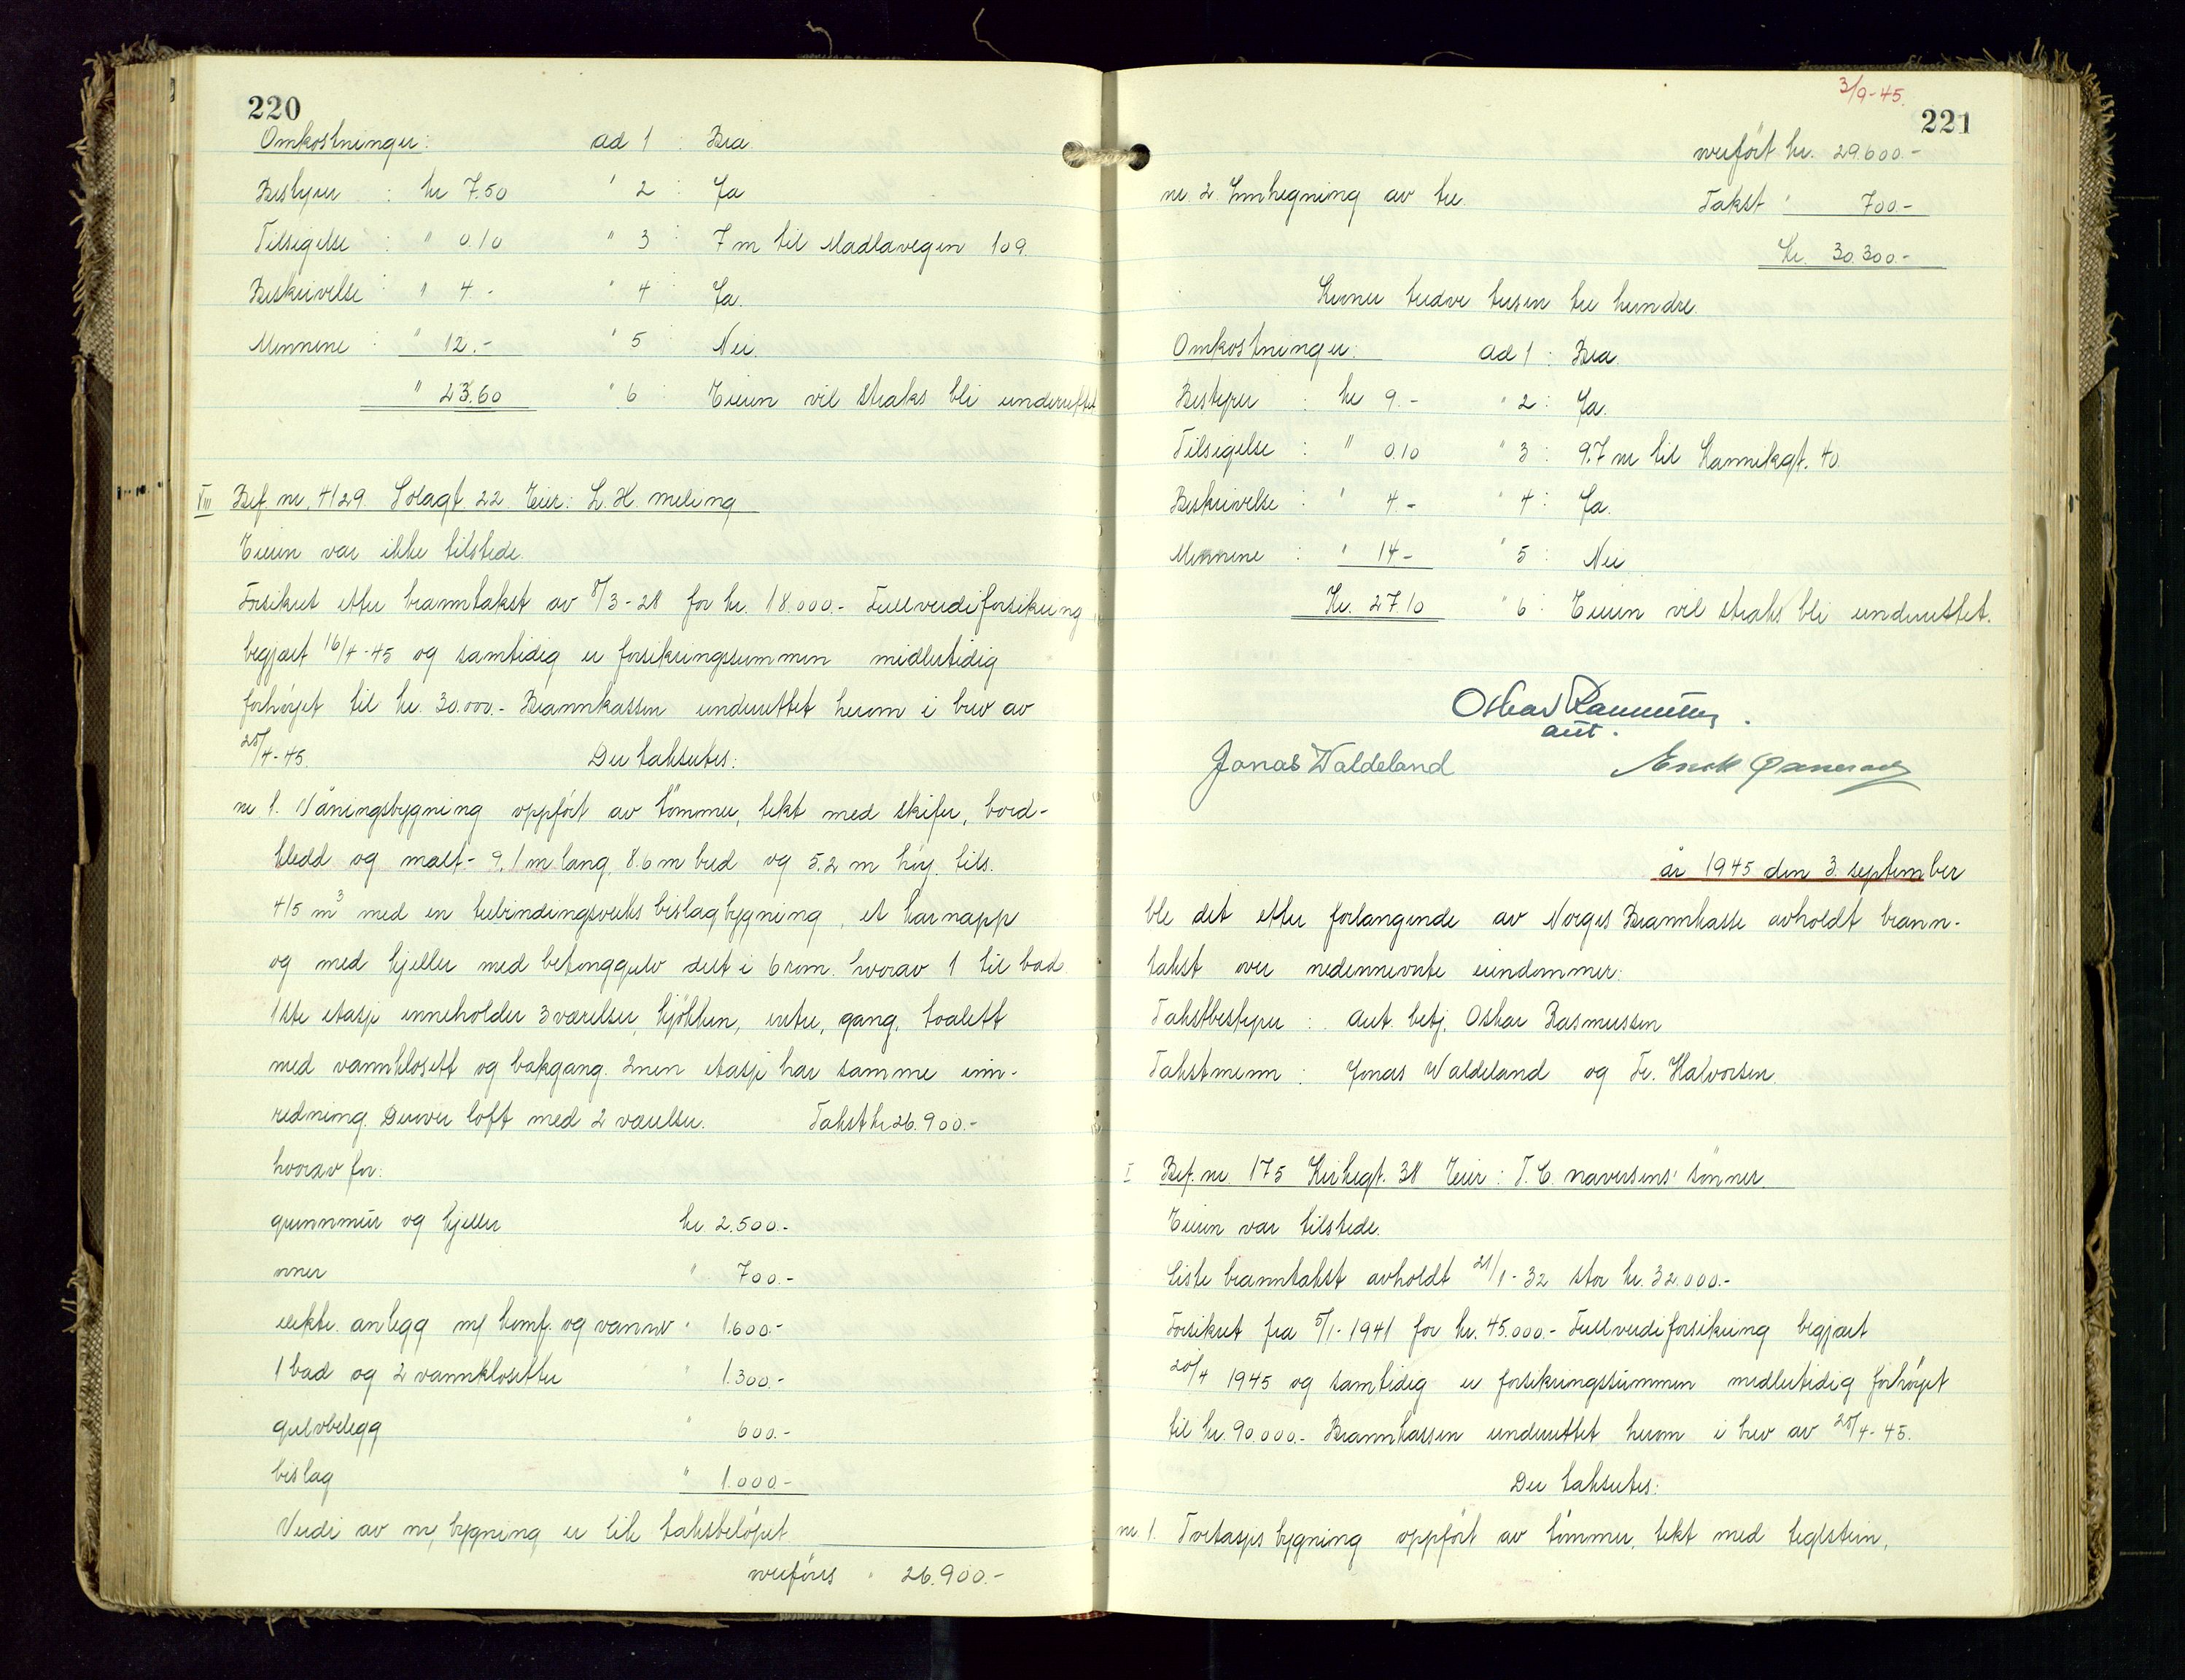 220
Omkostninger: ad 1 : Bra.
Bestyrer : kr 7.50 " 2 : Ja
Tilsigelse : " 0.10 " 3 : 7 m til Madlavegen 109.
Beskrivelse : " 4 - " 4 : Ja.
Mennene : " 12.- " 5 Nei.
" 23.60 " 6 : Eieren vil straks bli underrettet
VIII Bef nr. 4129. Solagt 22 Eier: L. H. Meling
Eieren var ikke tilstede.
Forsikret etter branntakst av 8/3-28 for kr. 18.000.- Fullverdiforsikring
begjært 16/4-45 og samtidig er forsikringssummen midlertidig
forhøyet til kr. 30.000.- Brannkassen underrettet herom i brev av
25/4-45. Der takseres:
nr 1. Våningsbygning oppført av tømmer, tekt med skifer, bord-
kledd og malt - 9.1 m lang 8.6 m bred og 5.2 m høy. tils.
415 m3 med en bislagbygning, et karnapp
og med kjeller med betonggulv delt i 6 rom. hvorav 1 til bad.
1ste etasje inneholder 3 værelser, kjøkken, entre, gang, toalett
med vannklosett og bakgang. 2nen etasje har samme inn-
redning. Derover loft med 2 værelser. Takst kr 26.900.-
hvorav for:
grunnmur og kjeller kr. 2.500.-
ovner " 700.-
elektr. anlegg m/ komf. og vannv " 1.600.-
1 bad og 2 vannklosetter " 1.300.-
gulvbelegg " 600.-
bislag " 1.000.-
Verdi av ny bygning er lik takstbeløpet.
overføres " 26.900.-
3/9-45.
221
overført kr. 29.600.-
nr. 2. Innhegning av tre Takst " 700.-
Kr. 30.300.-
Kroner tredve tusen tre hundre.
Omkostninger: ad 1 : Bra.
Bestyrer : kr 9.- " 2 : Ja.
Tilsigelse : " 0.10 " 3 : 9.7 m til Kannikgt. 40.
Beskrivelse : " 4.- " 4 : Ja.
Mennene : " 14- " 5 : Nei
Kr. 27.10 " 6 : Eieren vil straks bli underrettet.
Oskar Rasmussen.
aut.
Jonas Waldeland
år 1945 den 3. september
ble det etter forlangende av Norges Brannkasse avholdt brann-
takst over nedennevnte eiendommer:
Takstbestyrer : aut. betj. Oskar Rasmussen
Takstmenn : Jonas Waldeland og Fr. Halvorsen.
I Bef. nr. 175 Kirkegt. 38 Eier: T. C. Naversens' sønner
Eieren var tilstede.
Siste branntakst avholdt 21/1-32 stor kr. 32.000.-
Forsikret fra 5/1-1941 for kr. 45.000.- Fullverdiforsikring begjært
20/4 1945 og samtidig er forsikringssummen midlertidig forhøyet
til kr. 90.000.- Brannkassen underrettet herom i brev av 25/4-45.
Der takseres:
nr. 1. Toetasjes bygning oppført av tømmer, tekt med teglstein,